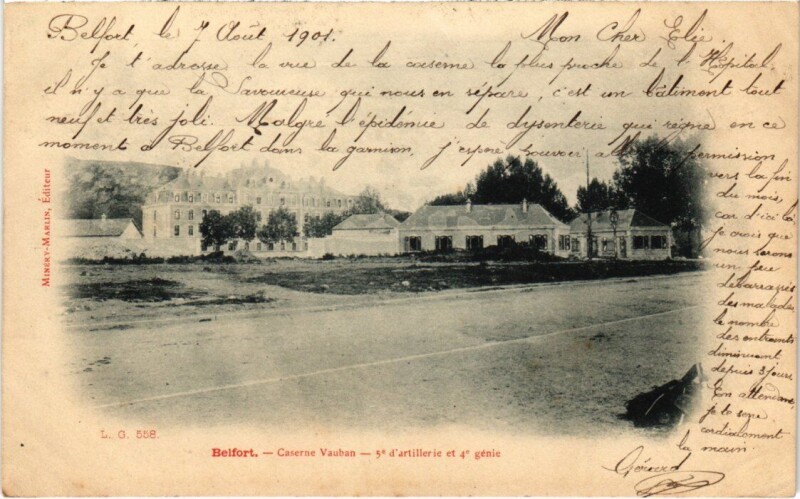 Belfort, le 7 Août 1901.
Mon Cher Elie.
Je t'adresse la vue de la caserne la plus proche de l'Hôpital
il n'y a que la Savoureuse qui nous en sépare, c'est un bâtiment tout
neuf et très joli. Malgré l'épidémie de dysenterie qui règne en ce
moment à Belfort dans la garnison, j'espère pouvoir aller permission
vers la fin
du mois,
car d'ici là
je crois que
nous serons
un peu
débarrassés
des malades
le nombre
des entrants
diminuent
depuis 3 jours
En attendant
je te serre
cordialement
la main.
Gérard
MINÉRY-MARLIN, Éditeur
L. G. 558.
Belfort. — Caserne Vauban — 5e d'artillerie et 4e génie